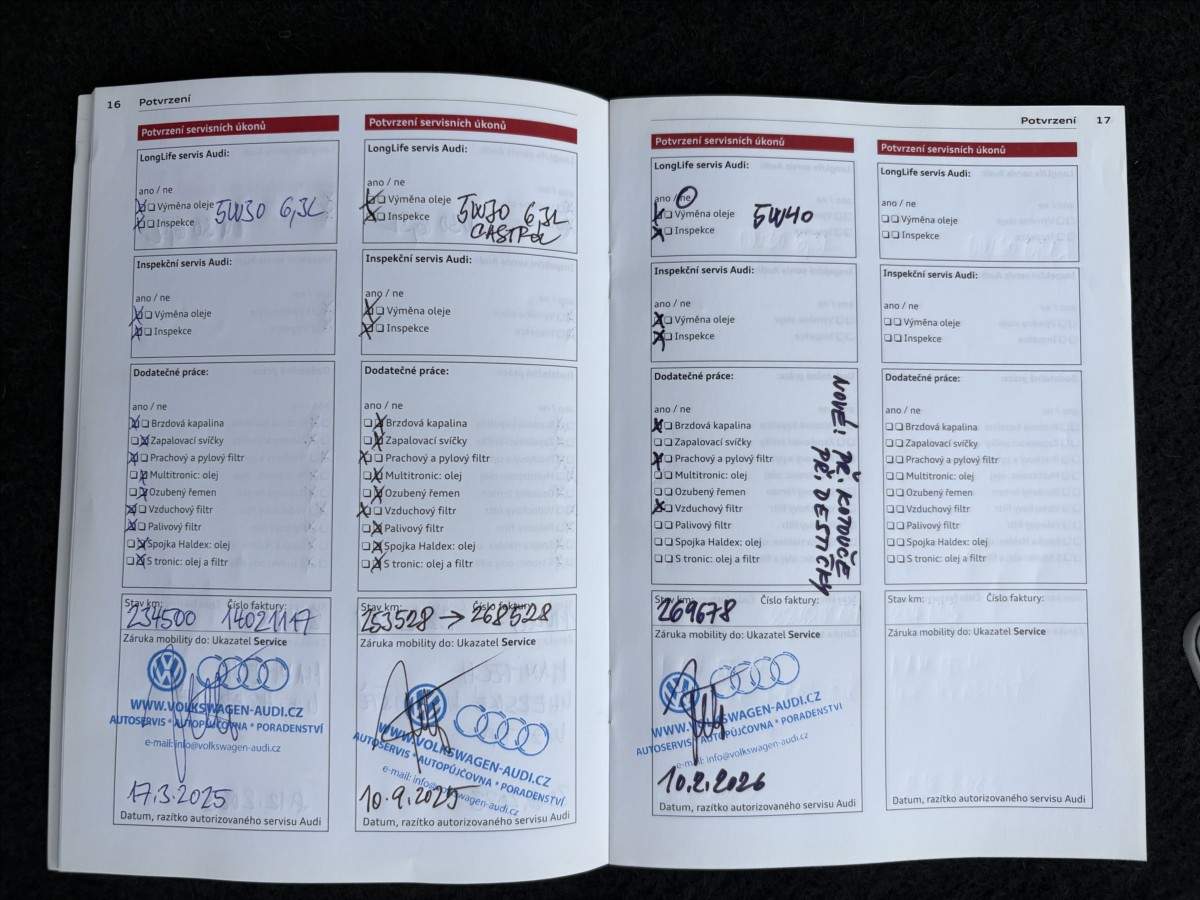 16 Potvrzení
Potvrzení servisních úkonů
LongLife servis Audi:
ano / ne
Výměna oleje 5W30 6,3L
Inspekce
Inspekční servis Audi:
ano / ne
Výměna oleje
Inspekce
Dodatečné práce:
ano / ne
Brzdová kapalina
Zapalovací svíčky
Prachový a pylový filtr
Multitronic: olej
Ozubený řemen
Vzduchový filtr
Palivový filtr
Spojka Haldex: olej
S tronic: olej a filtr
Stav km: Číslo faktury:
234500 14021117
Záruka mobility do: Ukazatel Service
WWW.VOLKSWAGEN-AUDI.CZ
AUTOSERVIS * AUTOPŮJČOVNA * PORADENSTVÍ
e-mail: info@volkswagen-audi.cz
17.3.2025
Datum, razítko autorizovaného servisu Audi
Potvrzení servisních úkonů
LongLife servis Audi:
ano / ne
Výměna oleje
Inspekce 5W30 6,3L
CASTROL
Inspekční servis Audi:
ano / ne
Výměna oleje
Inspekce
Dodatečné práce:
ano / ne
Brzdová kapalina
Zapalovací svíčky
Prachový a pylový filtr
Multitronic: olej
Ozubený řemen
Vzduchový filtr
Palivový filtr
Spojka Haldex: olej
S tronic: olej a filtr
Stav km: Číslo faktury:
253528 → 268528
Záruka mobility do: Ukazatel Service
WWW.VOLKSWAGEN-AUDI.CZ
AUTOSERVIS * AUTOPŮJČOVNA * PORADENSTVÍ
e-mail: info@volkswagen-audi.cz
10.9.2025
Datum, razítko autorizovaného servisu Audi
Potvrzení 17
Potvrzení servisních úkonů
LongLife servis Audi:
ano / ne
Výměna oleje 5W40
Inspekce
Inspekční servis Audi:
ano / ne
Výměna oleje
Inspekce
Dodatečné práce:
ano / ne
Brzdová kapalina
Zapalovací svíčky
Prachový a pylový filtr
Multitronic: olej
Ozubený řemen
Vzduchový filtr
Palivový filtr
Spojka Haldex: olej
S tronic: olej a filtr
NOVÉ: PŘ. KOTOUČE
PŘ. DESTIČKY
Stav km: Číslo faktury:
269678
Záruka mobility do: Ukazatel Service
WWW.VOLKSWAGEN-AUDI.CZ
AUTOSERVIS * AUTOPŮJČOVNA * PORADENSTVÍ
e-mail: info@volkswagen-audi.cz
10.2.2026
Datum, razítko autorizovaného servisu Audi
Potvrzení servisních úkonů
LongLife servis Audi:
ano / ne
Výměna oleje
Inspekce
Inspekční servis Audi:
ano / ne
Výměna oleje
Inspekce
Dodatečné práce:
ano / ne
Brzdová kapalina
Zapalovací svíčky
Prachový a pylový filtr
Multitronic: olej
Ozubený řemen
Vzduchový filtr
Palivový filtr
Spojka Haldex: olej
S tronic: olej a filtr
Stav km: Číslo faktury:
Záruka mobility do: Ukazatel Service
Datum, razítko autorizovaného servisu Audi